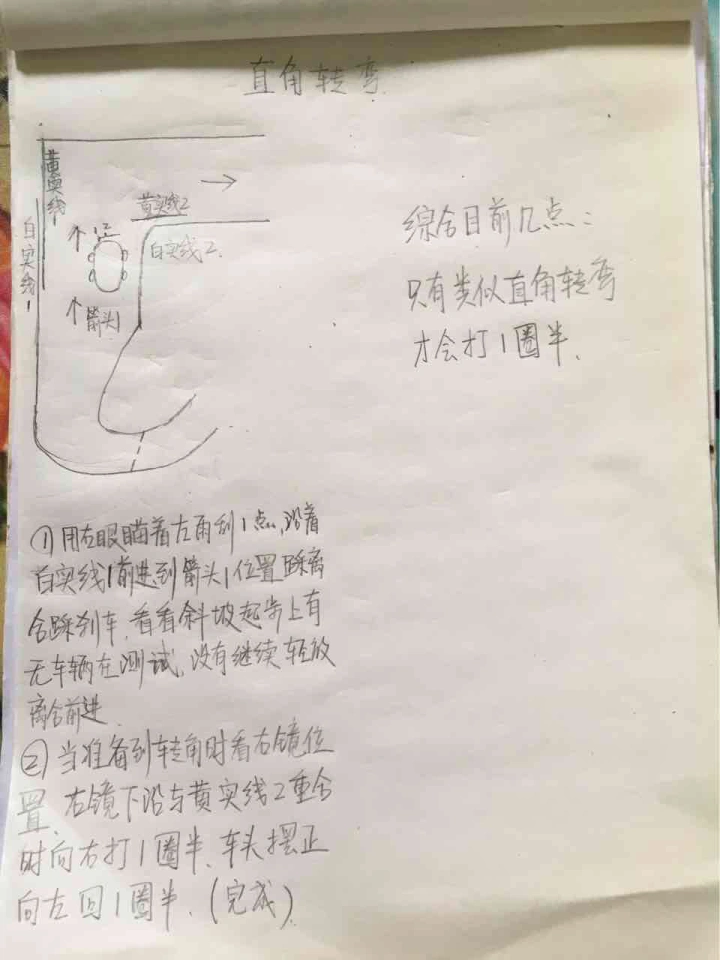 直角转弯
黄实线1
白实线1
1 2
黄实线2
白实线2.
箭头1
综合目前几点:
只有类似直角转弯
才会打1圈半.
①用左眼瞄着左雨刮1点,沿着
白实线1前进到箭头1位置踩离
合踩刹车,看看斜坡起步上有
无车辆在测试,没有继续轻放
离合前进.
②当准备到转角时看右镜位
置,右镜下沿与黄实线2重合
时向右打1圈半、车头摆正
向左回1圈半.(完成)